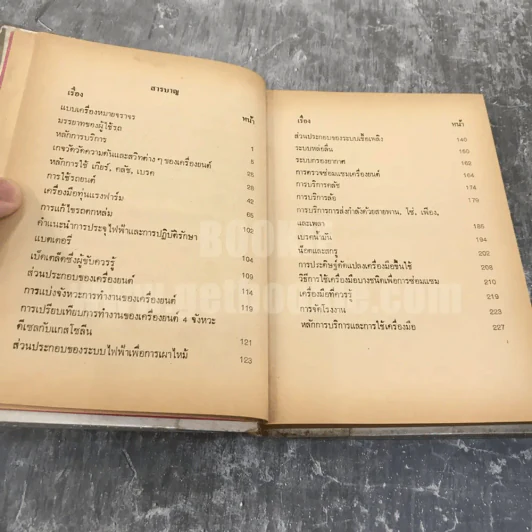 สารบาญ
เรื่อง หน้า
แบบเครื่องหมายจราจร
มรรยาทของผู้ใช้รถ
หลักการบริการ 1
เกจวัดวัดความดันและสวิทต่าง ๆ ของเครื่องยนต์ 5
หลักการใช้ เกียร์, คลัช, เบรค 25
การใช้รถยนต์ 25
เครื่องมือทุ่นแรงฟาร์ม 42
การแก้ไขรถตกหล่ม 65
คำแนะนำการประจุไฟฟ้าและการปฏิบัติรักษา
แบตเตอรี่ 94
เบ็ดเตล็ดซึ่งผู้ขับควรรู้ 104
ส่วนประกอบของเครื่องยนต์ 109
การแบ่งจังหวะการทำงานของเครื่องยนต์ 114
การเปรียบเทียบการทำงานของเครื่องยนต์ 4 จังหวะ 119
ดีเซลกับแกสโซลีน 121
ส่วนประกอบของระบบไฟฟ้าเพื่อการเผาไหม้ 123
เรื่อง หน้า
ส่วนประกอบของระบบเชื้อเพลิง 140
ระบบหล่อลื่น 150
ระบบกรองอากาศ 162
การตรวจซ่อมแซมเครื่องยนต์ 164
การบริการคลัช 174
การบริการล้อ 179
การบริการการส่งกำลังด้วยสายพาน, โซ่, เฟือง,
และเพลา 185
เบรคน้ำมัน 194
น๊อตและสกรู 202
การประดิษฐ์ดัดแปลงเครื่องมือขึ้นใช้ 208
วิธีการใช้เครื่องมือบางชนิดเพื่อการซ่อมแซม 210
เครื่องมือที่ควรรู้ 219
การจัดโรงงาน 223
หลักการบริการและการใช้เครื่องมือ 227